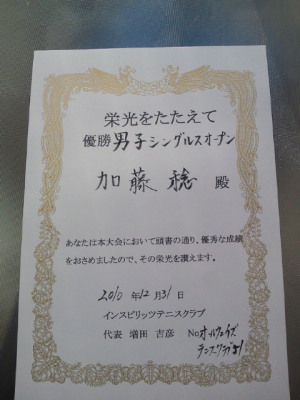 栄光をたたえて
優勝 男子シングルスオープン
加藤 稔 殿
あなたは本大会において頭書の通り、優秀な成績
をおさめましたので、その栄光を讃えます。
2010 年 12 月 31 日
インスピリッツテニスクラブ
代表 増田 吉彦 No オールウェイズ
テニスクラブ